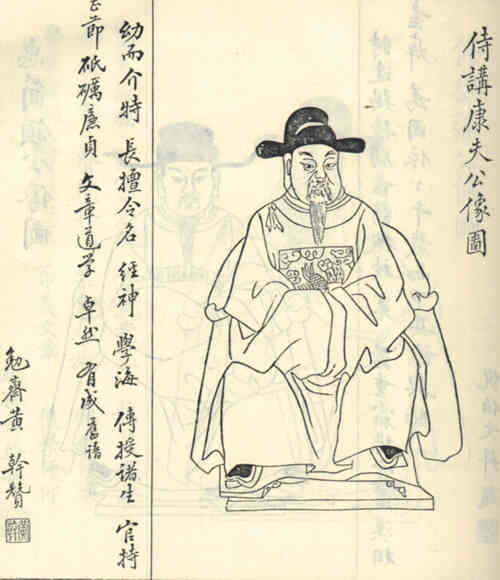 侍講康夫公像圖
幼而介特 長擅令名 經神 學海 傳授諸生 官持
節 砥礪廉貞 文章道学 卓然 有成 舊譜
勉齋黄 榦贊